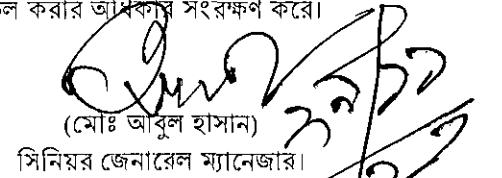 করার অধিকার সংরক্ষণ করে।
(মোঃ আবুল হাসান)
সিনিয়র জেনারেল ম্যানেজার।